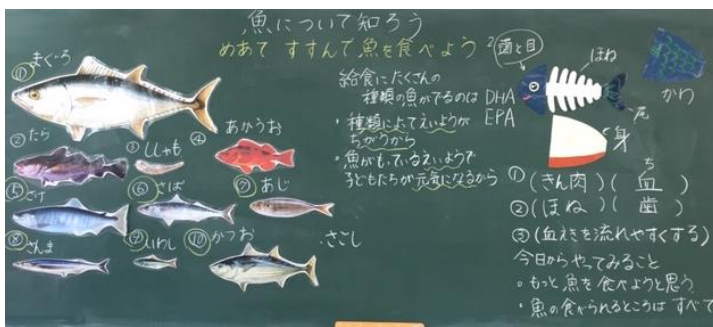 魚について知ろう
めあて すすんで魚を食べよう
① まぐろ
② たら
③ ししゃも
④ あかうお
⑤ さけ
⑥ さば
⑦ あじ
⑧ さんま
⑨ いわし
⑩ かつお
・さごし
給食にたくさんの
種類の魚がでるのは
・種類によてえいようが
ちがうから
・魚がもっているえいようで
子どもたちが元気になるから
DHA
EPA
歯と目
ほね
かわ
尾
身
①(きん肉)(血)
ち
②(ほね)(歯)
③(血えきを流れやすくする)
今日からやってみること
。もっと魚を食べようと思う
・魚の食べられるところはすべて